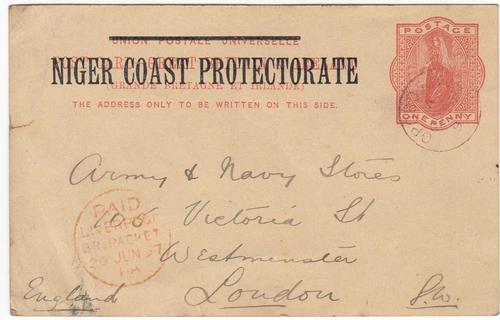 UNION POSTALE UNIVERSELLE
NIGER COAST PROTECTORATE
(GRANDE BRETAGNE ET IRLANDE)
THE ADDRESS ONLY TO BE WRITTEN ON THIS SIDE.
POSTAGE
ONE PENNY
Army & Navy Stores
105 Victoria St
Westminster
England London S.W.
PAID
LIVERPOOL
BR. PACKET
26 JUN 97